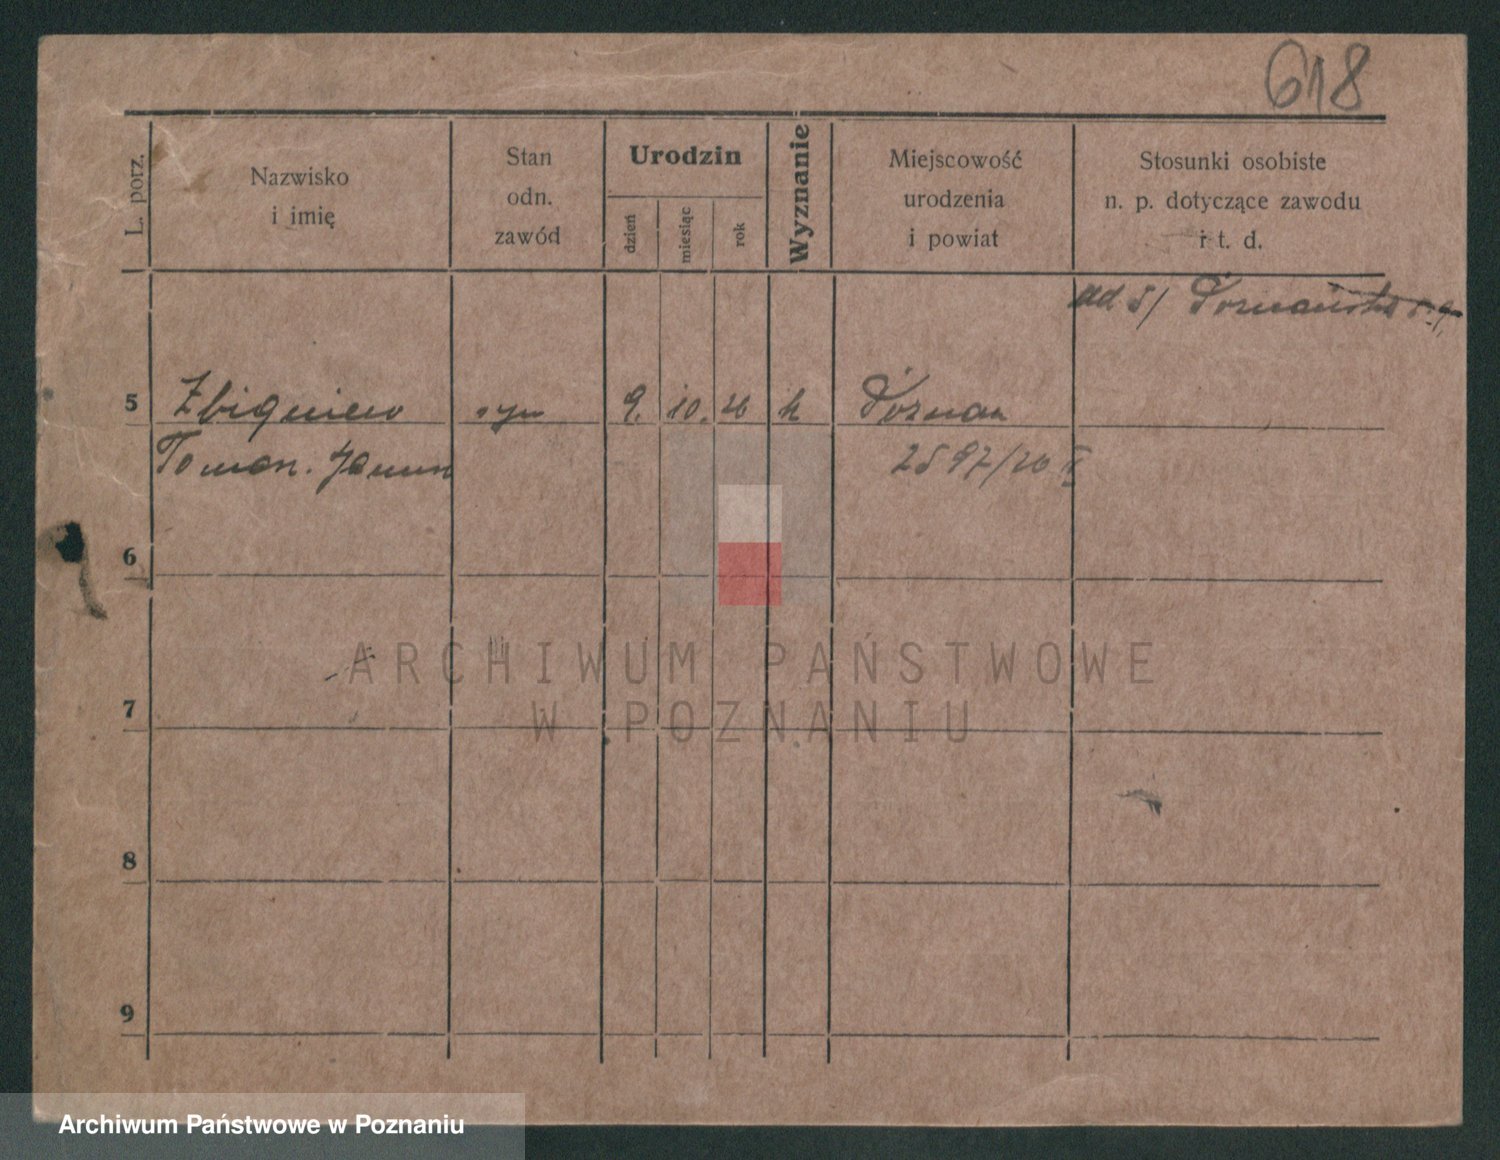 618
L. porz.
Nazwisko
i imię
Stan
odn.
zawód
Urodzin
dzień
miesiąc
rok
Wyznanie
Miejscowość
urodzenia
i powiat
Stosunki osobiste
n. p. dotyczące zawodu
i t. d.
ad 5/
5 Zbigniew syn 9. 10. 26 k Poznań
Roman. 2597/26 II
6
7
8
9
ARCHIWUM PAŃSTWOWE
W POZNANIU
Archiwum Państwowe w Poznaniu